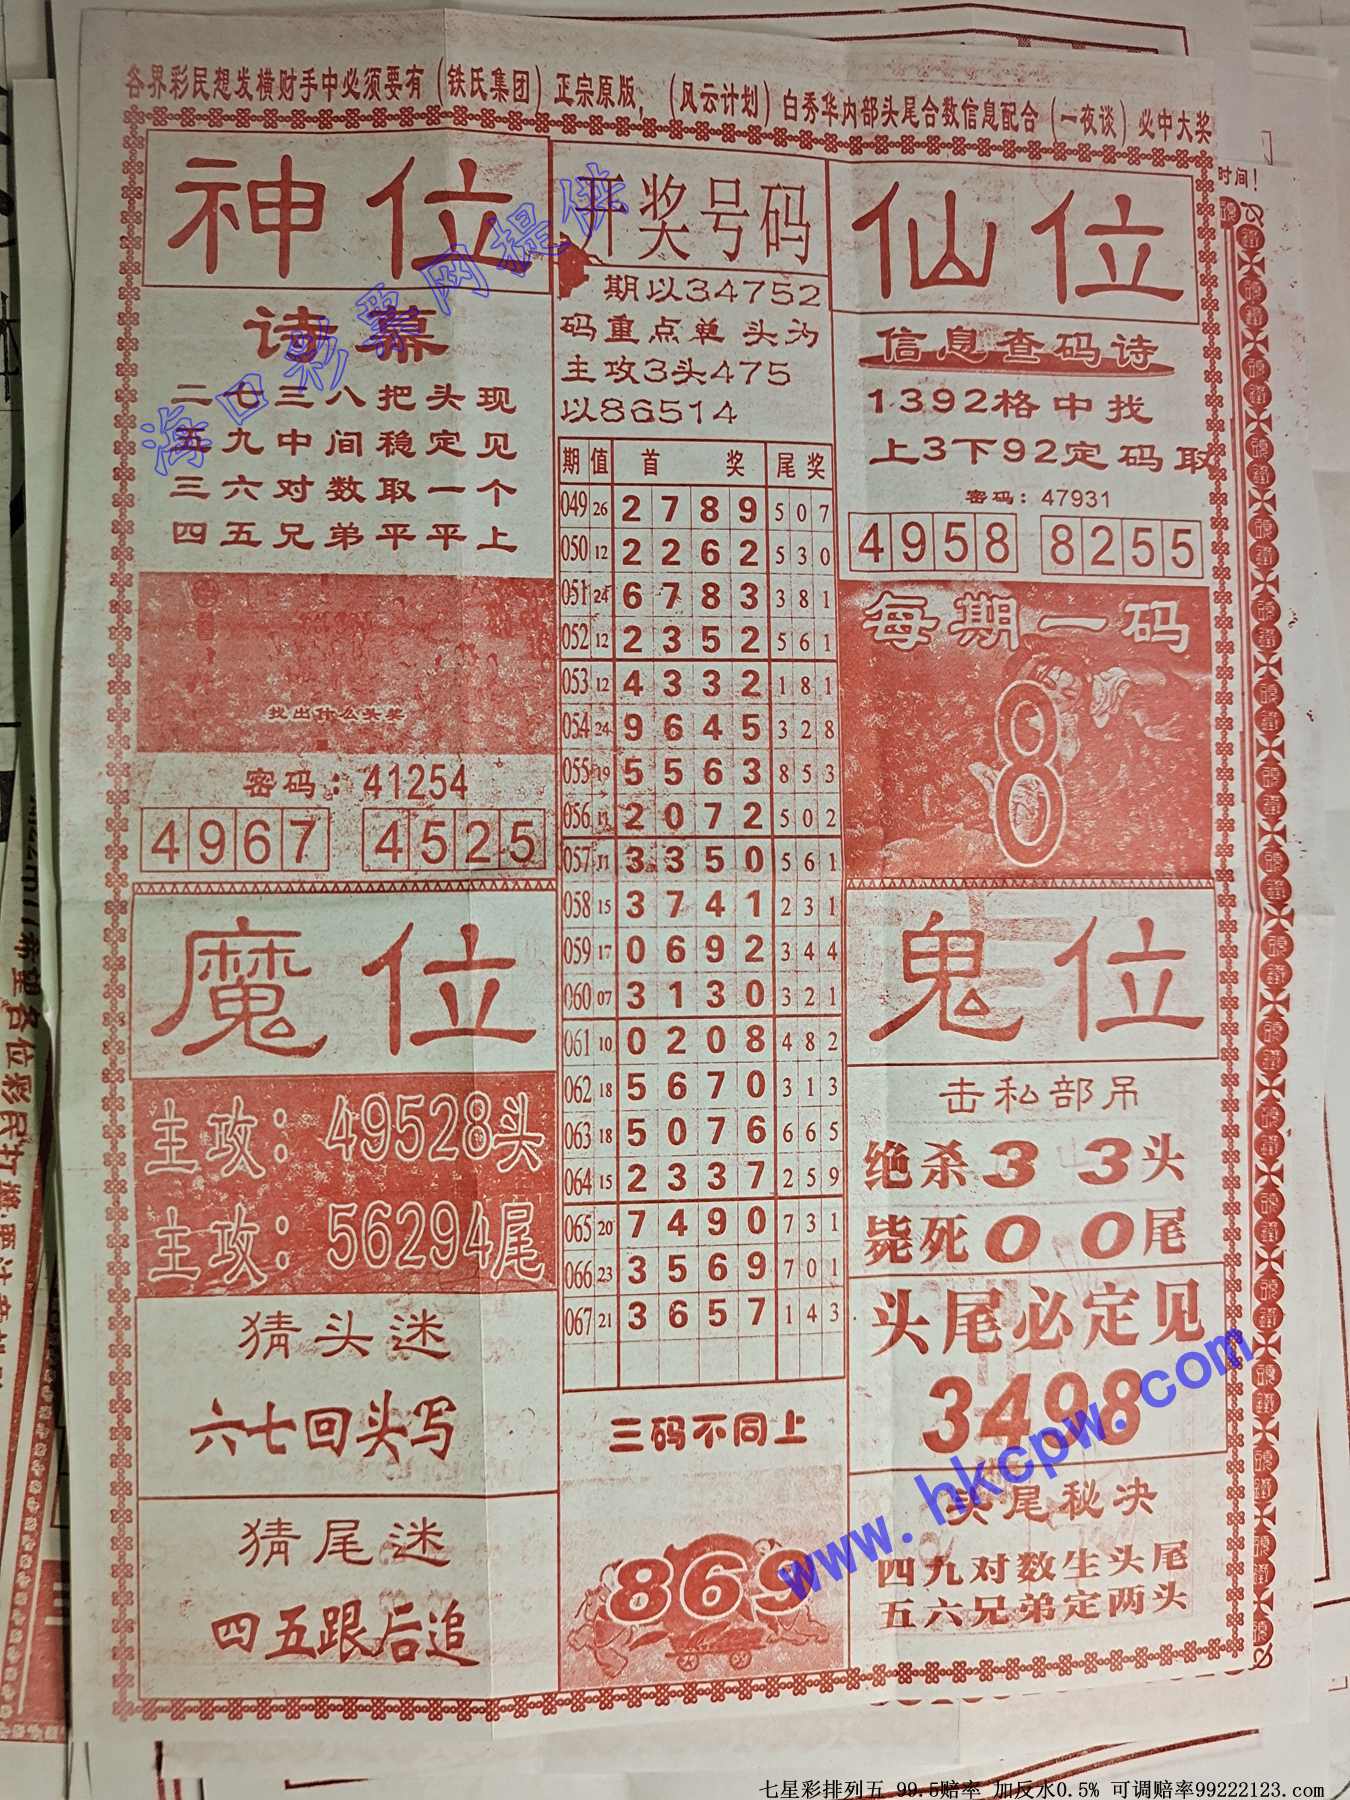 各界彩民想发横财手中必须要有（铁氏集团）正宗原版，（风云计划）白秀华内部头尾合数信息配合（一夜谈）必中大奖
时间！
神位
诗幕
二七三八把头现
五九中间稳定见
三六对数取一个
四五兄弟平平上
找出什么头奖
密码：41254
4967 4525
开奖号码
期以34752
码重点单 头为
主攻3头475
以86514
期 值 首奖 尾奖
049 26 2 7 8 9 5 0 7
050 12 2 2 6 2 5 3 0
051 24 6 7 8 3 3 8 1
052 12 2 3 5 2 5 6 1
053 12 4 3 3 2 1 8 1
054 24 9 6 4 5 3 2 8
055 19 5 5 6 3 8 5 3
056 11 2 0 7 2 5 0 2
057 11 3 3 5 0 5 6 1
058 15 3 7 4 1 2 3 1
059 17 0 6 9 2 3 4 4
060 07 3 1 3 0 3 2 1
061 10 0 2 0 8 4 8 2
062 18 5 6 7 0 3 1 3
063 18 5 0 7 6 6 6 5
064 15 2 3 3 7 2 5 9
065 20 7 4 9 0 7 3 1
066 23 3 5 6 9 7 0 1
067 21 3 6 5 7 1 4 3
三码不同上
869
仙位
信息查码诗
1392格中找
上3下92定码取
密码：47931
4958 8255
每期一码
8
魔位
主攻：49528头
主攻：56294尾
猜头迷
六七回头写
猜尾迷
四五跟后追
鬼位
击私部吊
绝杀3 3头
毙死0 0尾
头尾必定见
3498
头尾秘决
四九对数生头尾
五六兄弟定两头
海口彩票网提供
www.hkcpw.com
七星彩排列五 99.5赔率 加反水0.5% 可调赔率99222123.com